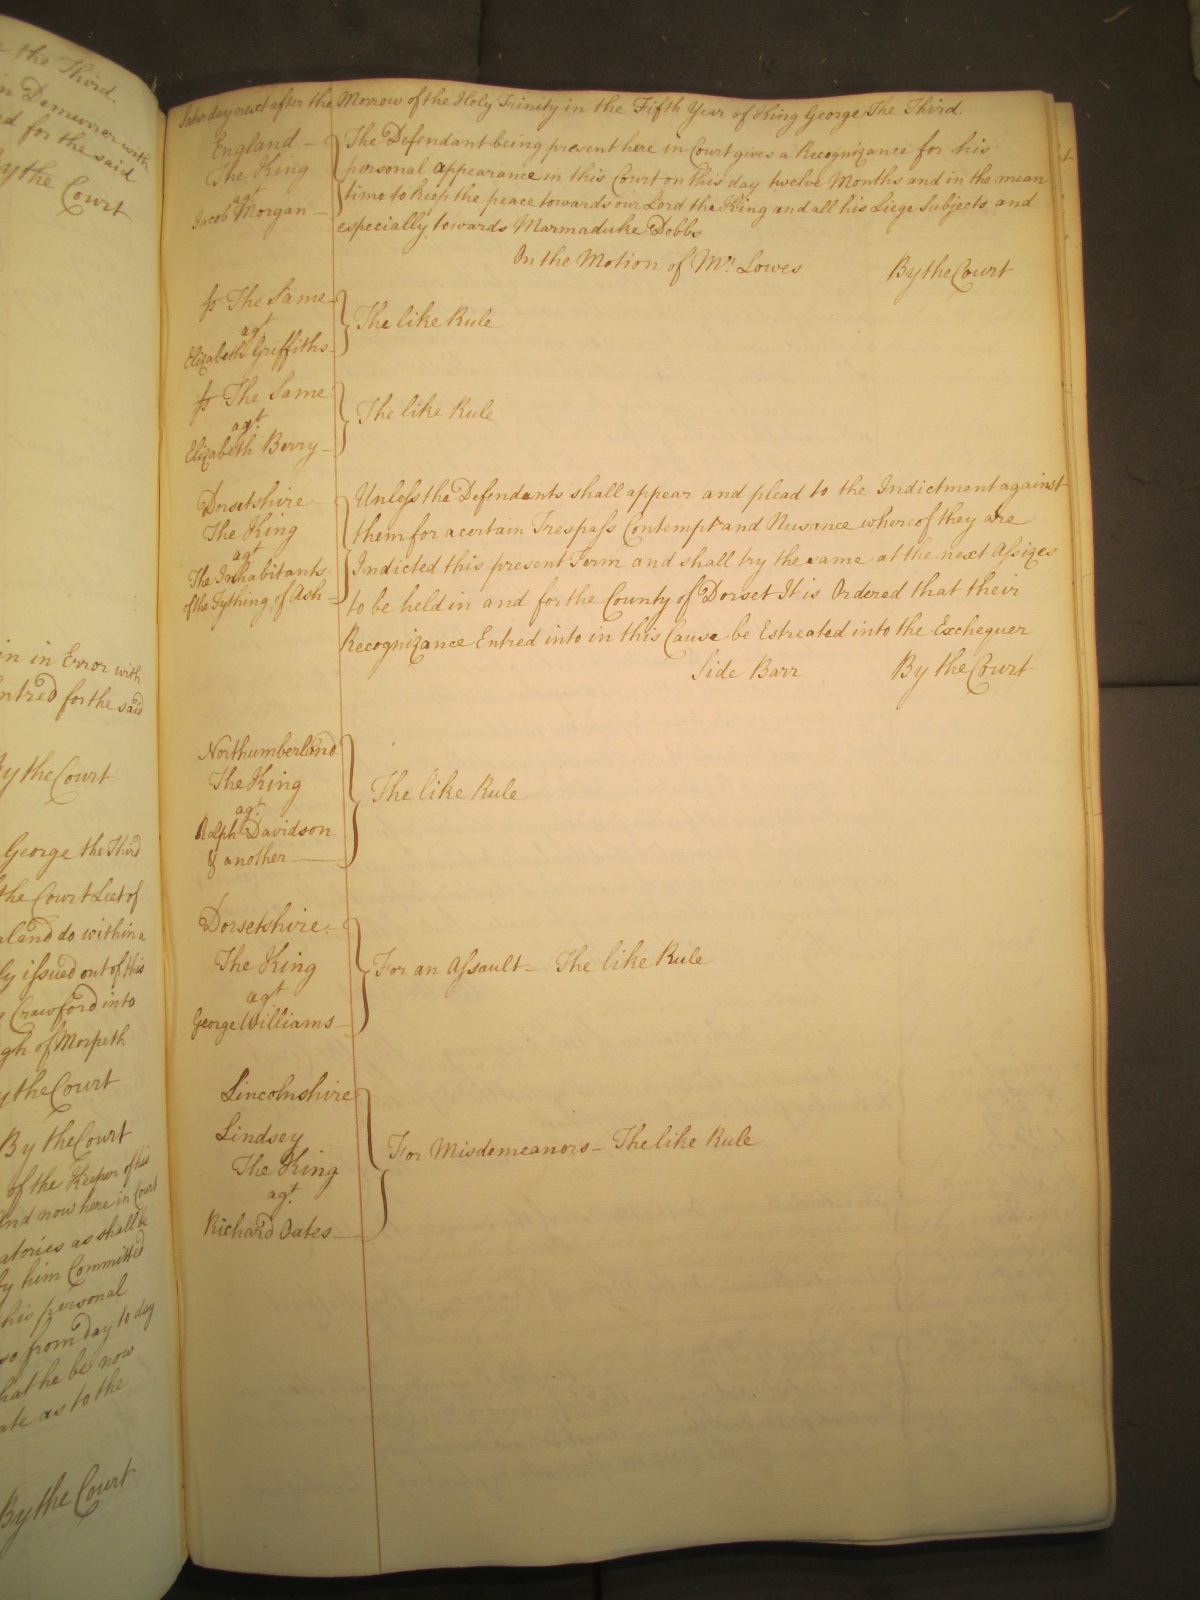 the Third.
in Demurrer with
for the said
By the Court
in in Error with
ntred for the said
By the Court
George the Third
the Court Leet of
land do within a
ly issued out of this
Crawford into
gh of Morpeth
y the Court
By the Court
of the Keeper of his
and now here in Court
atories as shall be
by him Committed
his personal
so from day to day
hat he be now
ate as to the
By the Court
Saturday next after the Morrow of the Holy Trinity in the Fifth Year of King George The Third.
England
The King
agt
Jacob Morgan
The Defendant being present here in Court gives a Recognizance for his
personal appearance in this Court on this day twelve Months and in the mean
time to keep the peace towards our Lord the King and all his Liege Subjects and
especially towards Marmaduke Dobbs
On the Motion of Mr. Lowes By the Court
The Same
agt
Elizabeth Griffiths
The like Rule
The Same
agt
Elizabeth Berry
The like Rule
Dorsetshire
The King
agt
The Inhabitants
of the Tything of Ash
Unless the Defendants shall appear and plead to the Indictment against
them for a certain Trespass Contempt and Nusance whereof they are
Indicted this present Term and shall try the same at the next Assizes
to be held in and for the County of Dorset It is Ordered that their
Recognizance Entred into in this Cause be Estreated into the Exchequer
Side Barr By the Court
Northumberland
The King
agt
Ralph Davidson
& another
The like Rule
Dorsetshire
The King
agt
George Williams
For an Assault The like Rule
Lincolnshire
Lindsey
The King
agt
Richard Oates
For Misdemeanors The like Rule